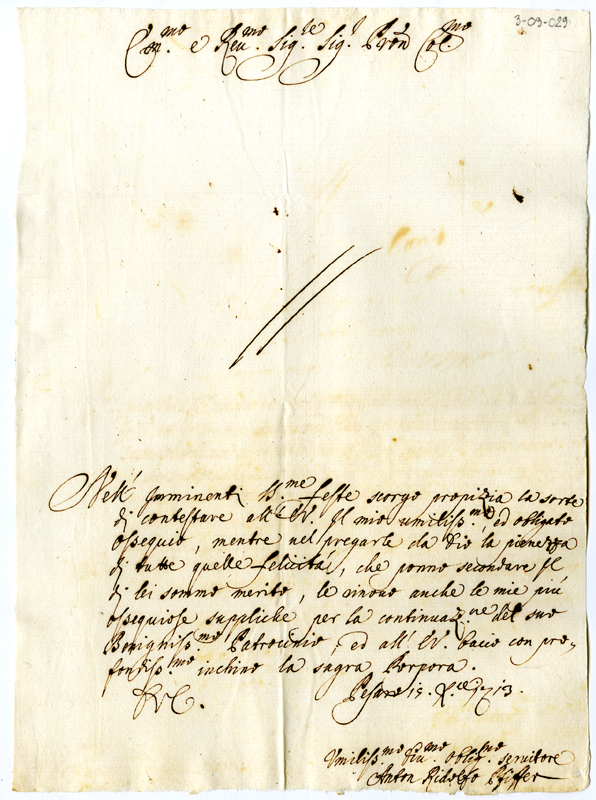 3-09-029
Em.mo e Reu.mo Sig.re Sig.r Pron Col.mo
Nell' Imminenti SS.me feste scorgo propizia la sorte
di contestare all' E V. Il mio umiliss.mo ed obligato
ossequio, mentre nel pregarle da Dio la pienezza
di tutte quelle felicità, che ponno secondare Il
di lei sommo merito, le rinouo anche le mie più
ossequiose suppliche per la continuaz.ne del suo
Benigniss.mo Patrocinio, ed all' E V. bacio con pro-
fondiss.mo inchino la sagra Porpora.
Pesaro 15. X.bre 1713.
Umiliss.mo Diu.mo Oblig.mo seruitore
Anton Ridolfo Pfiffer